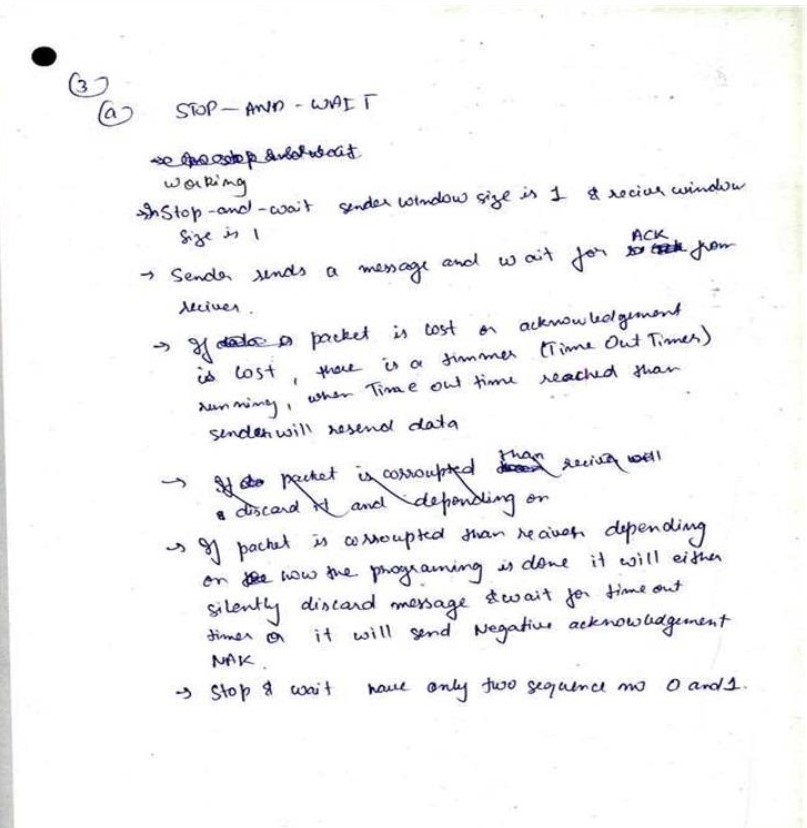 (3)
(a) STOP-AND-WAIT
working
→ In Stop-and-wait sender window size is 1 & reciver window
size is 1
→ Sender sends a message and wait for ACK from
reciver.
→ If packet is lost or acknowledgement
is lost, there is a timmer (Time Out Timer)
running, when Time out time reached than
sender will resend data
→ If packet is corroupted than reciver will
discard it and depending on
→ If packet is corroupted than reciver depending
on how the programing is done it will either
silently discard message & wait for time out
timer or it will send Negative acknowledgement
NAK.
→ Stop & wait have only two sequence no 0 and 1.